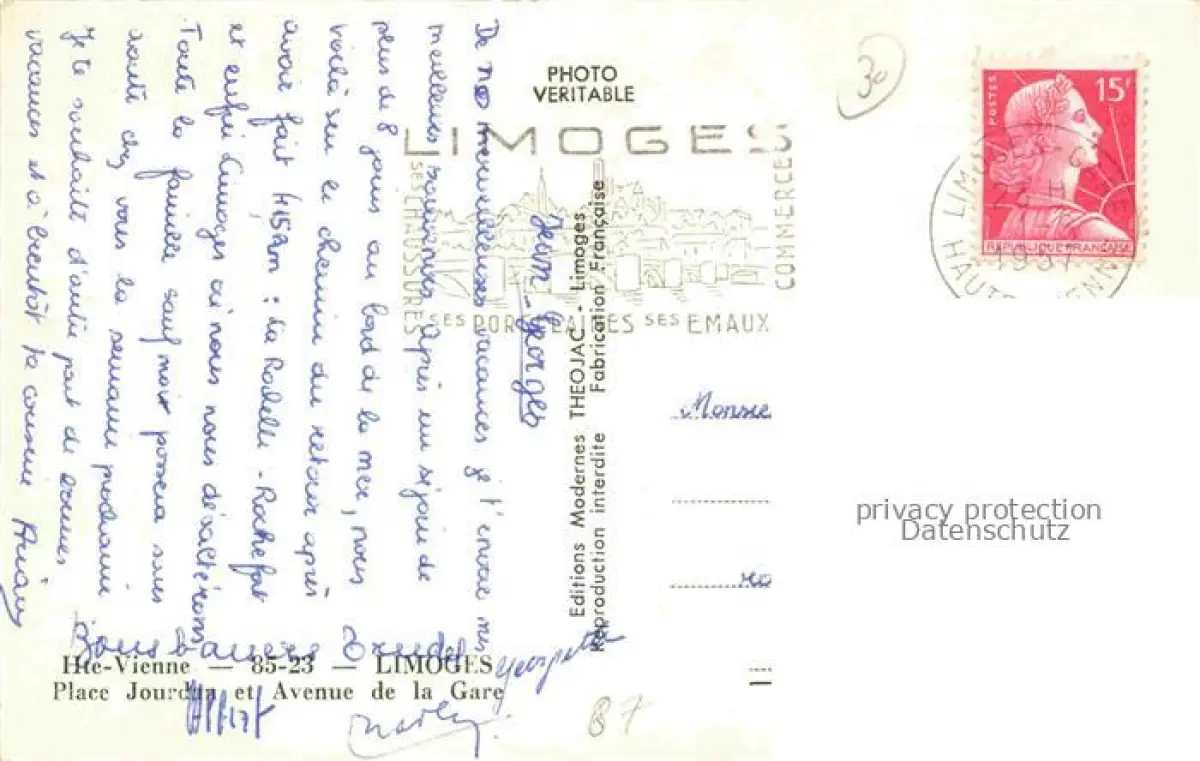 PHOTO
VERITABLE
30
POSTES
15F
REPUBLIQUE FRANÇAISE
LIMOGES
HAUTE VIENNE
1957
LIMOGES
SES CHAUSSURES
SES PORCELAINES SES EMAUX
COMMERCE
Jean-Georges
De nos merveilleuses vacances je t'envoie mes
meilleurs souvenirs. Après un séjour de
plus de 8 jours au bord de la mer, nous
voilà sur le chemin du retour après
avoir fait : La Rochelle - Rochefort
et enfin Limoges où nous nous
Toute la famille sauf moi passera
chez vous la semaine prochaine
Je te souhaite d'autre part de bonnes
vacances et à bientôt ta cousine
Bons baisers
Georgette
Editions Modernes THEOJAC - Limoges
Reproduction interdite Fabrication Française
Hte-Vienne — 85-23 — LIMOGES
Place Jourdan et Avenue de la Gare
87
Monsie
privacy protection
Datenschutz